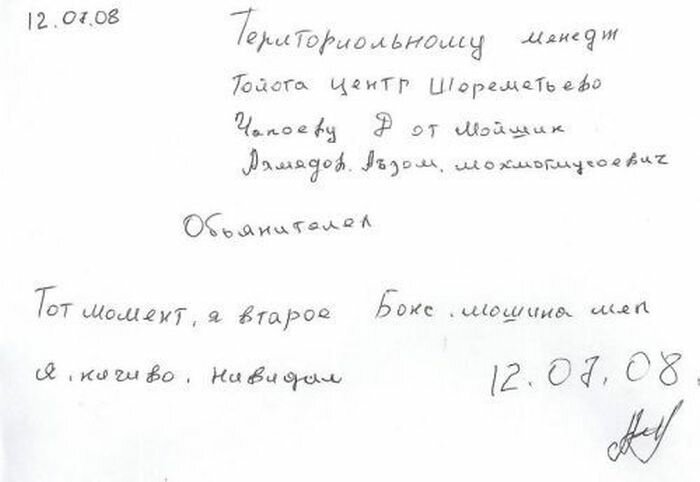 12.07.08
Териториольному менедж
Тойота центр Шореметьево
Чапоеву Д от Мойшик
Ахмедов. Аъзом. мохмотмусоевич
Обьянителел
Тот момент, я втарое Бокс. мошина меп
я. ничиво. нивидал 12.07.08.